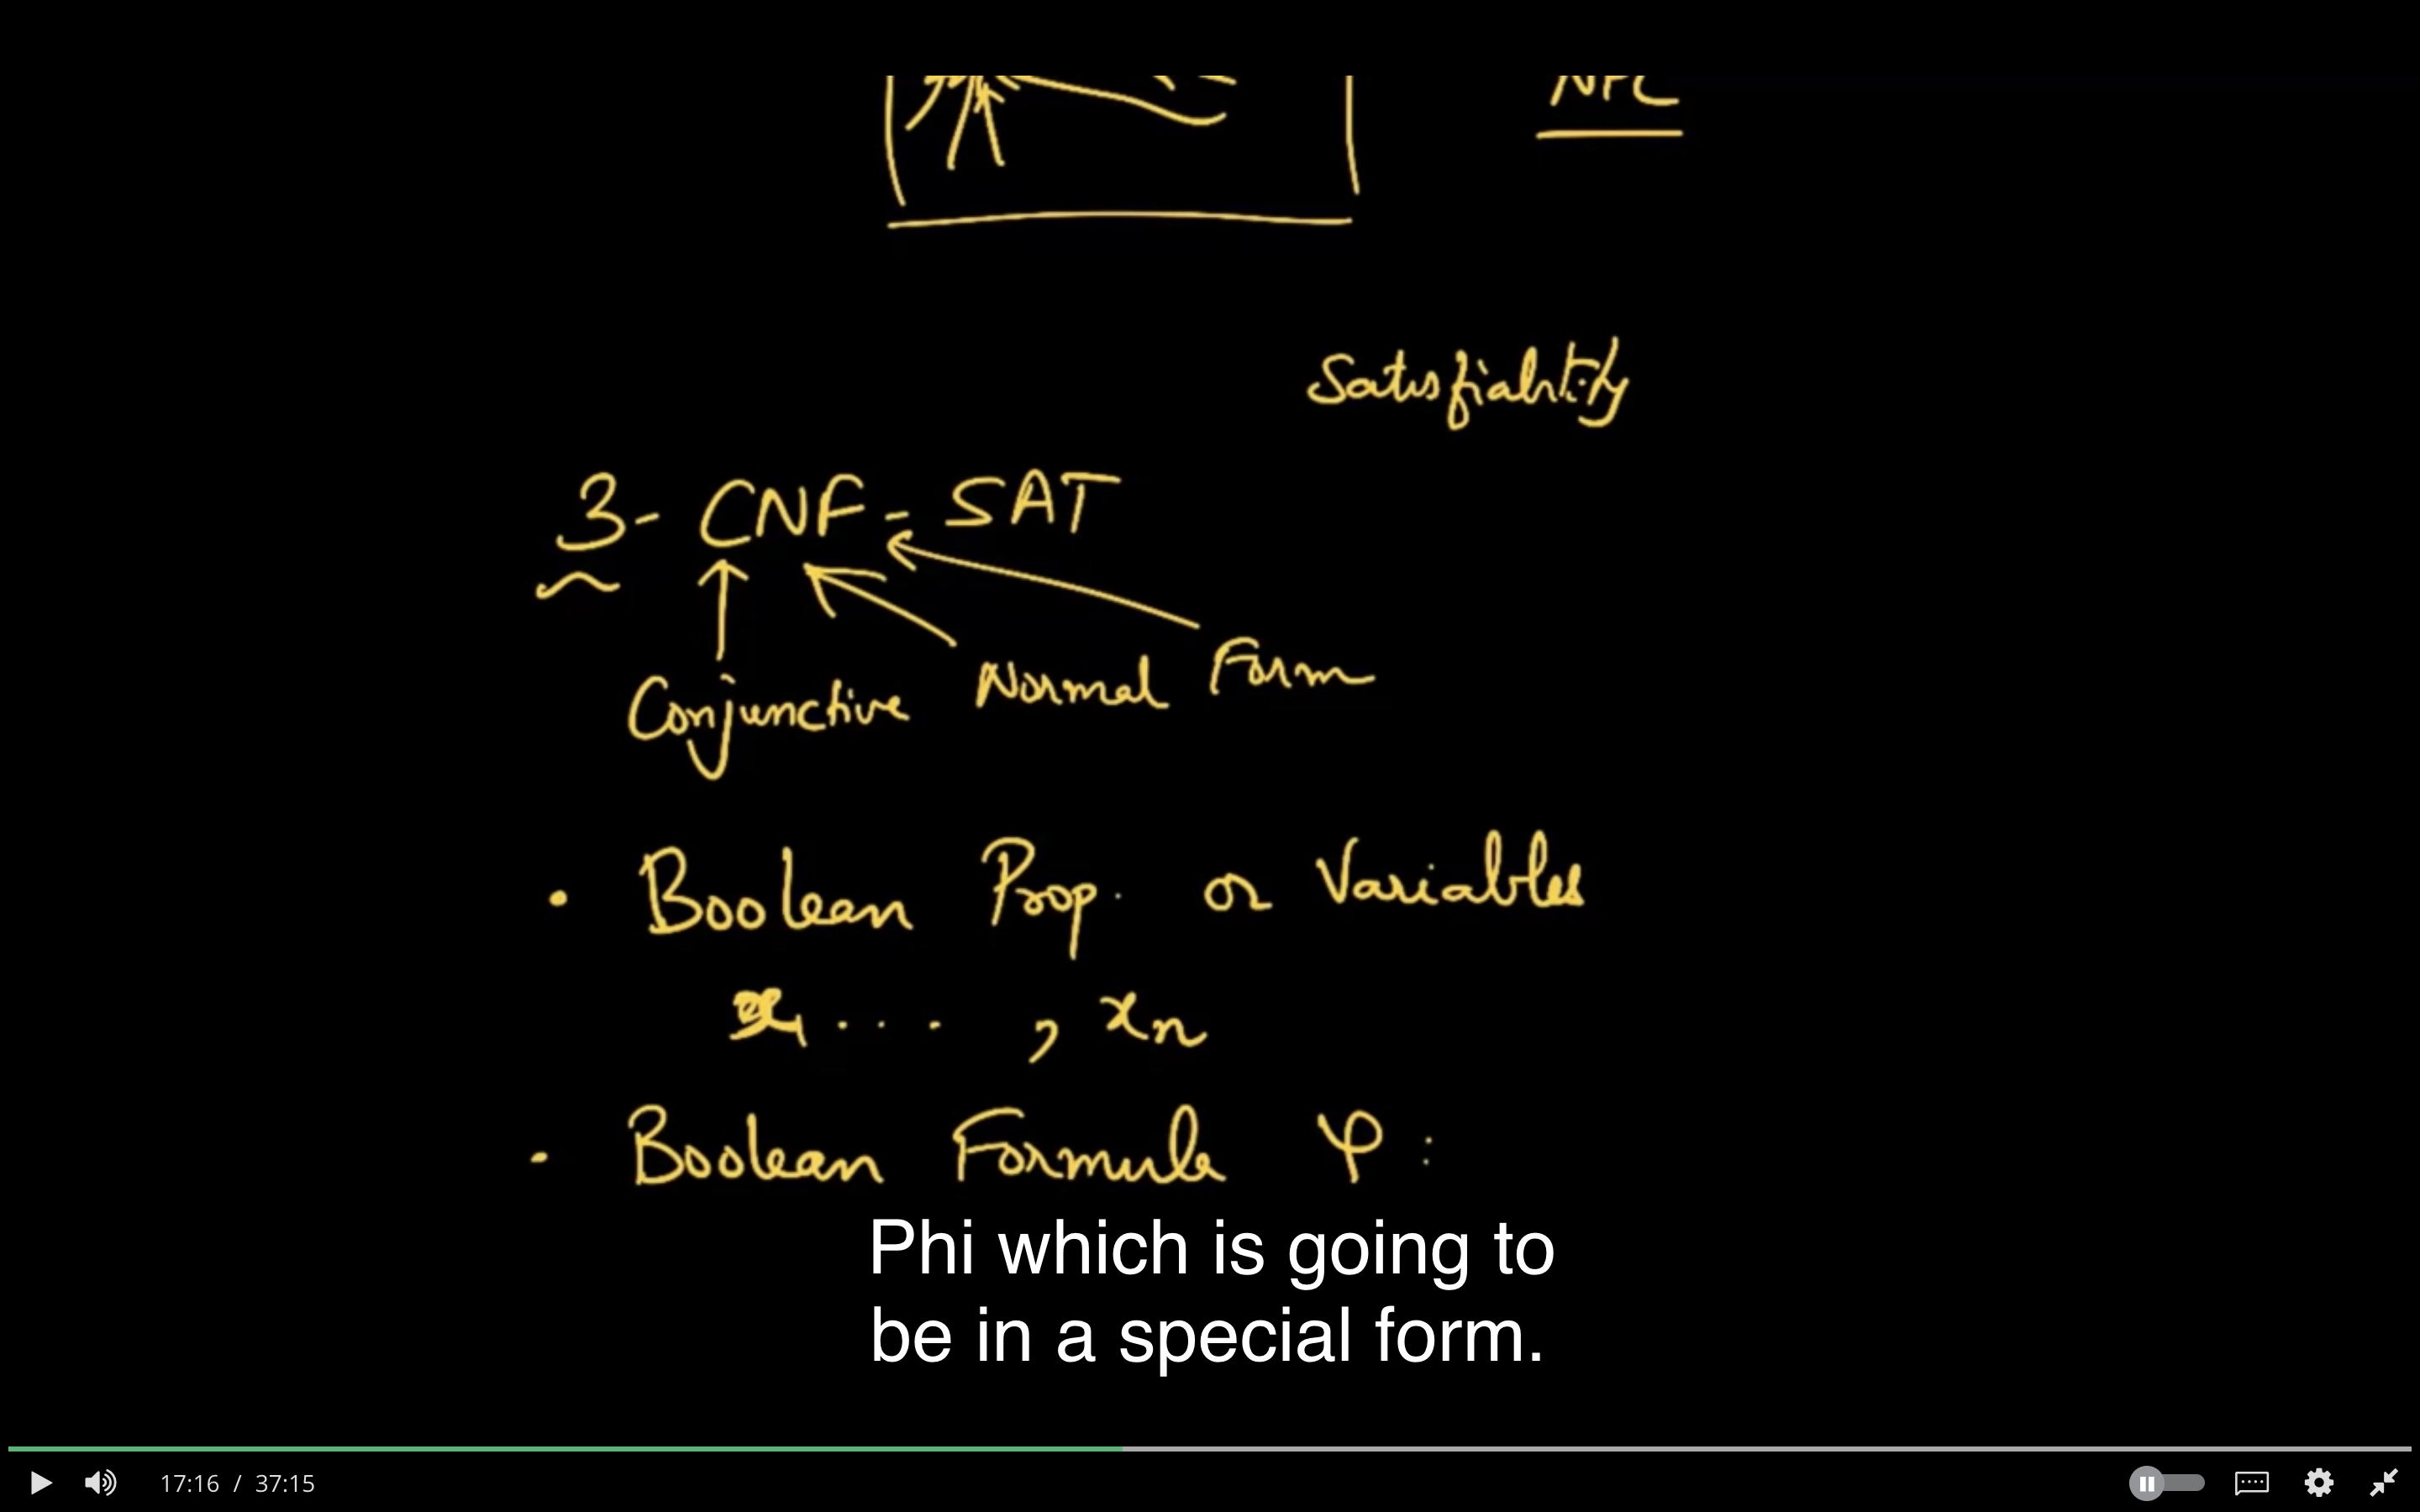 NPC
Satisfiability
3- CNF - SAT
Conjunctive Normal Form
• Boolean Prop. or Variables
x1 . . . . , xn
• Boolean Formula φ :
Phi which is going to
be in a special form.
17:16 / 37:15